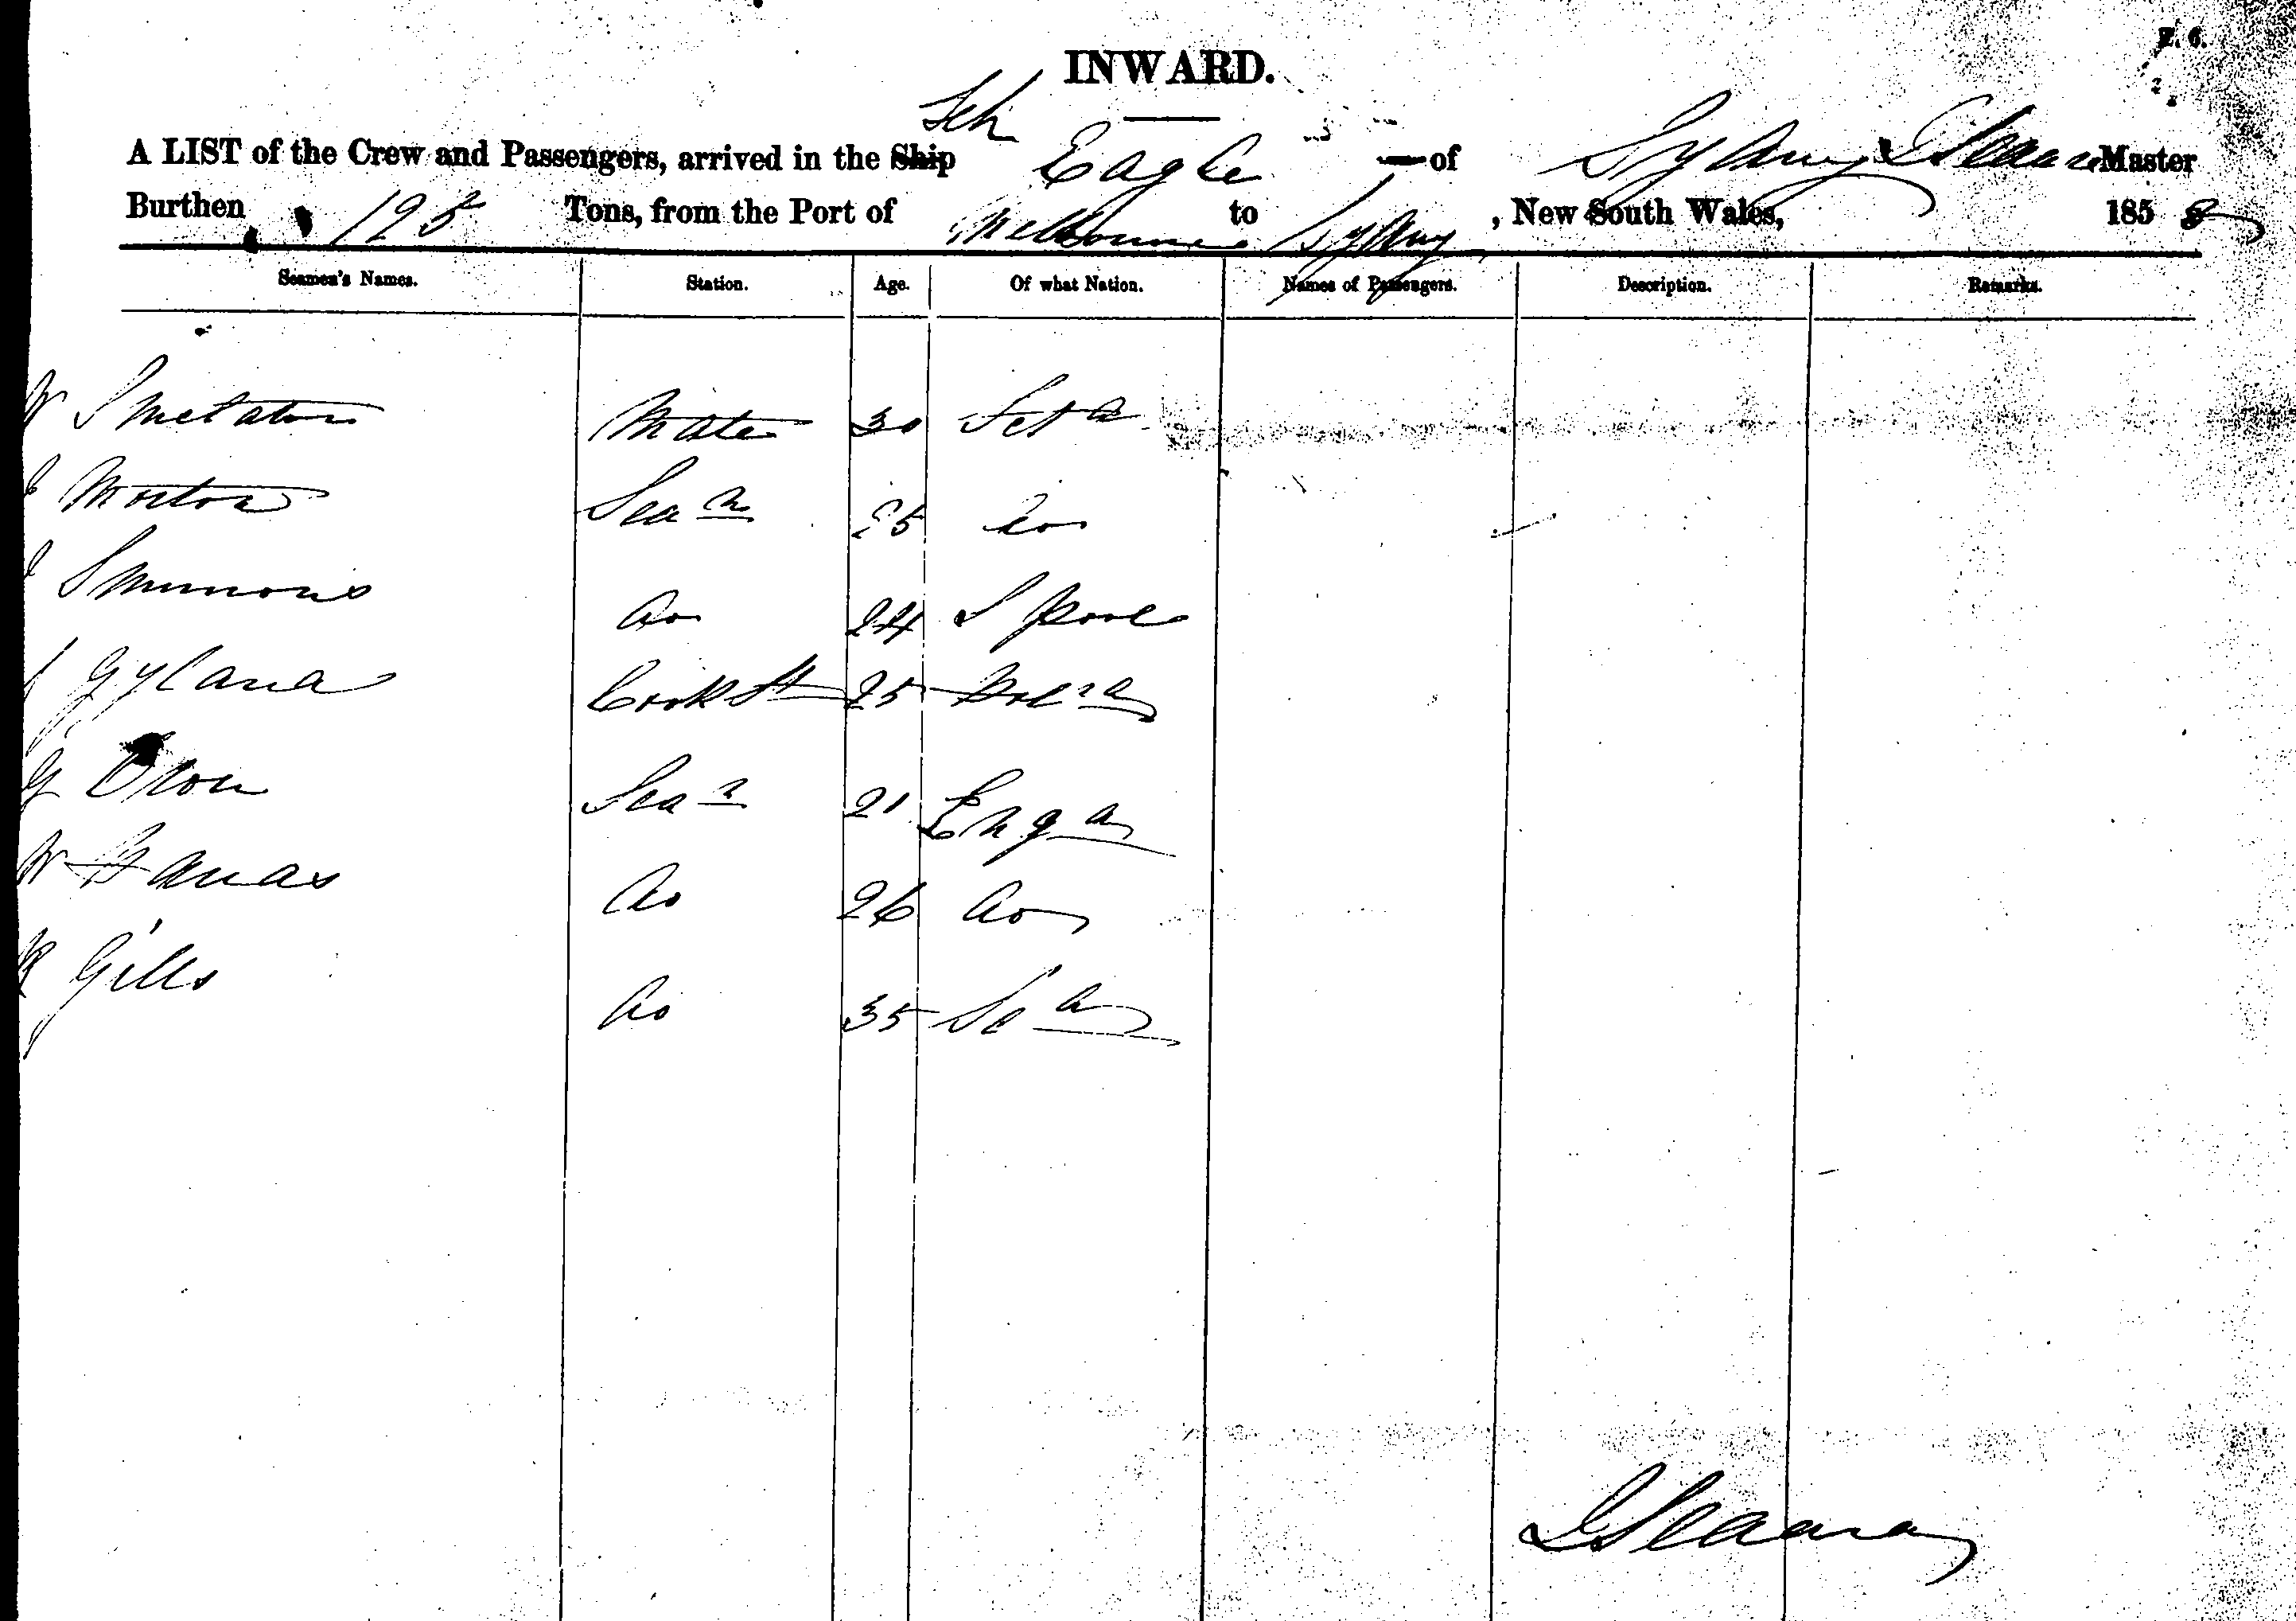 Z. 6.
INWARD.
Sch
A LIST of the Crew and Passengers, arrived in the Ship Eagle of Sydney Master
Burthen 195 Tons, from the Port of Melbourne to Sydney, New South Wales, 1858
Seamen's Names. Station. Age. Of what Nation. Names of Passengers. Description. Remarks.
W Smetaton Mate 30
Morton Sean 25 do
Simmons do 24 L pool
Gyland Cook St 25
G Sean 21 Eng d
W do 26 do
R Gills do 35